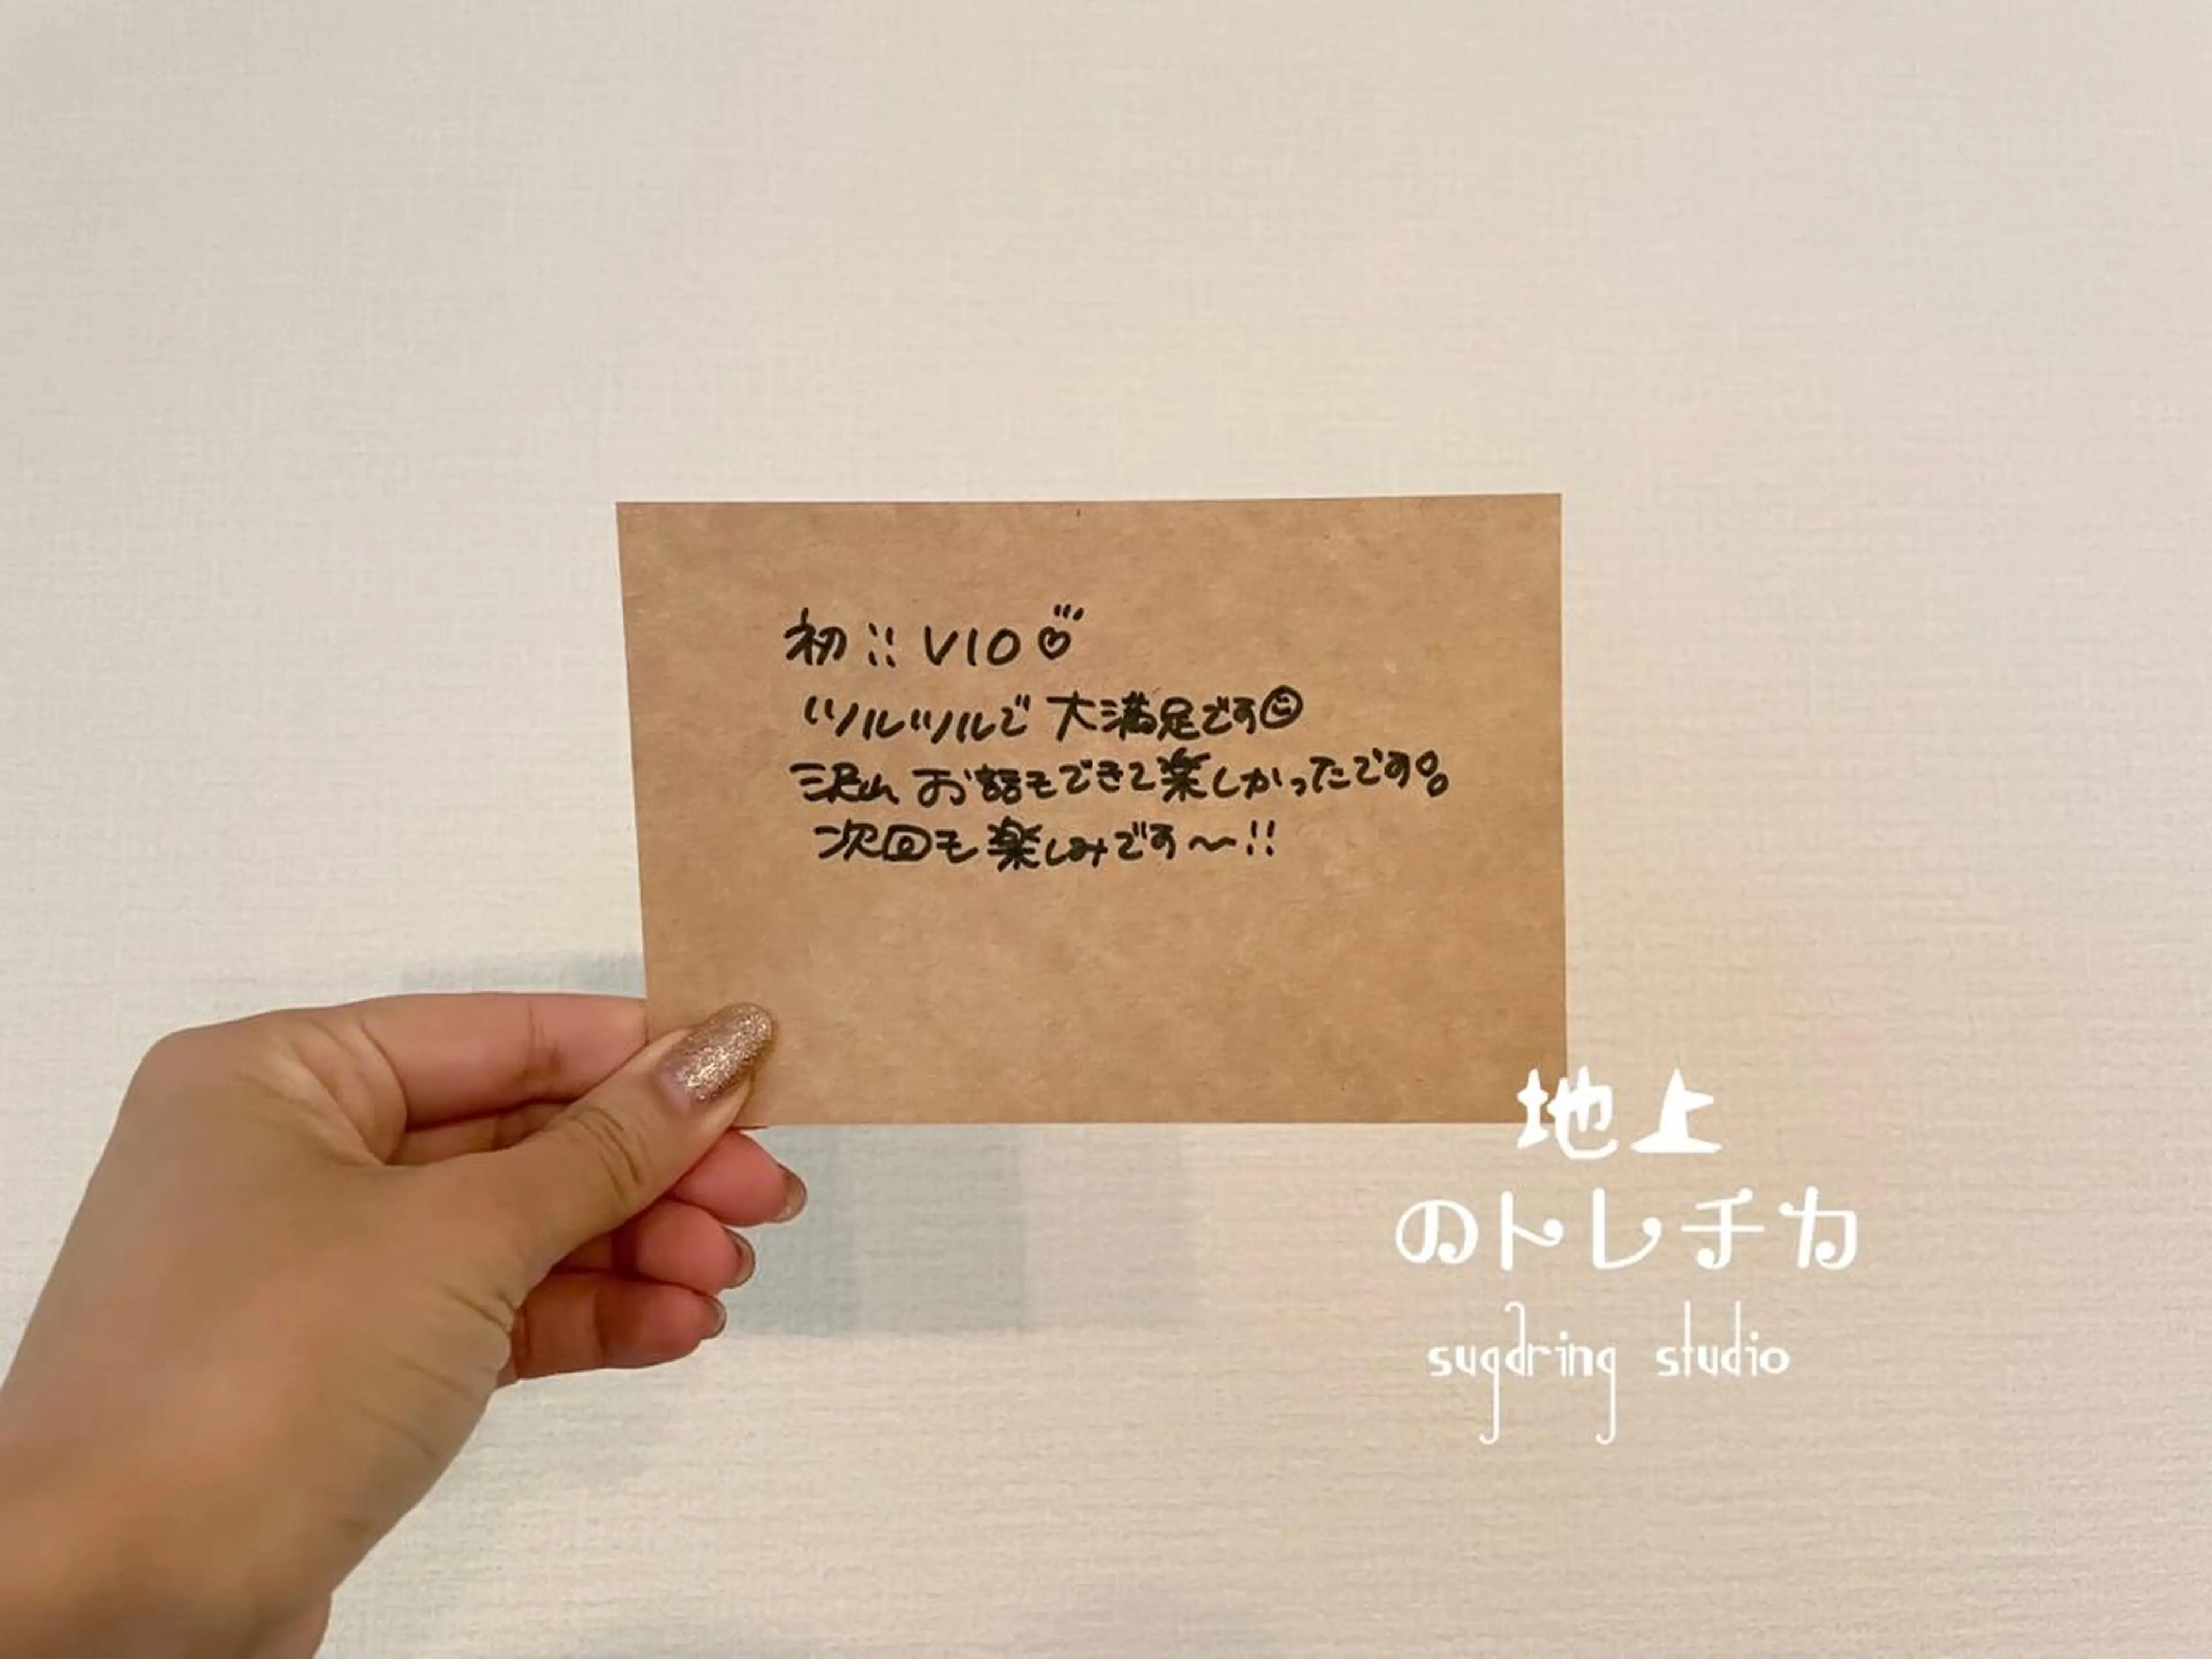 初!! VIO♡
ツルツルで 大満足です☺
沢山 お話もできて楽しかったです。
次回も 楽しみです〜!!
地上
のトレチカ
sugaring studio